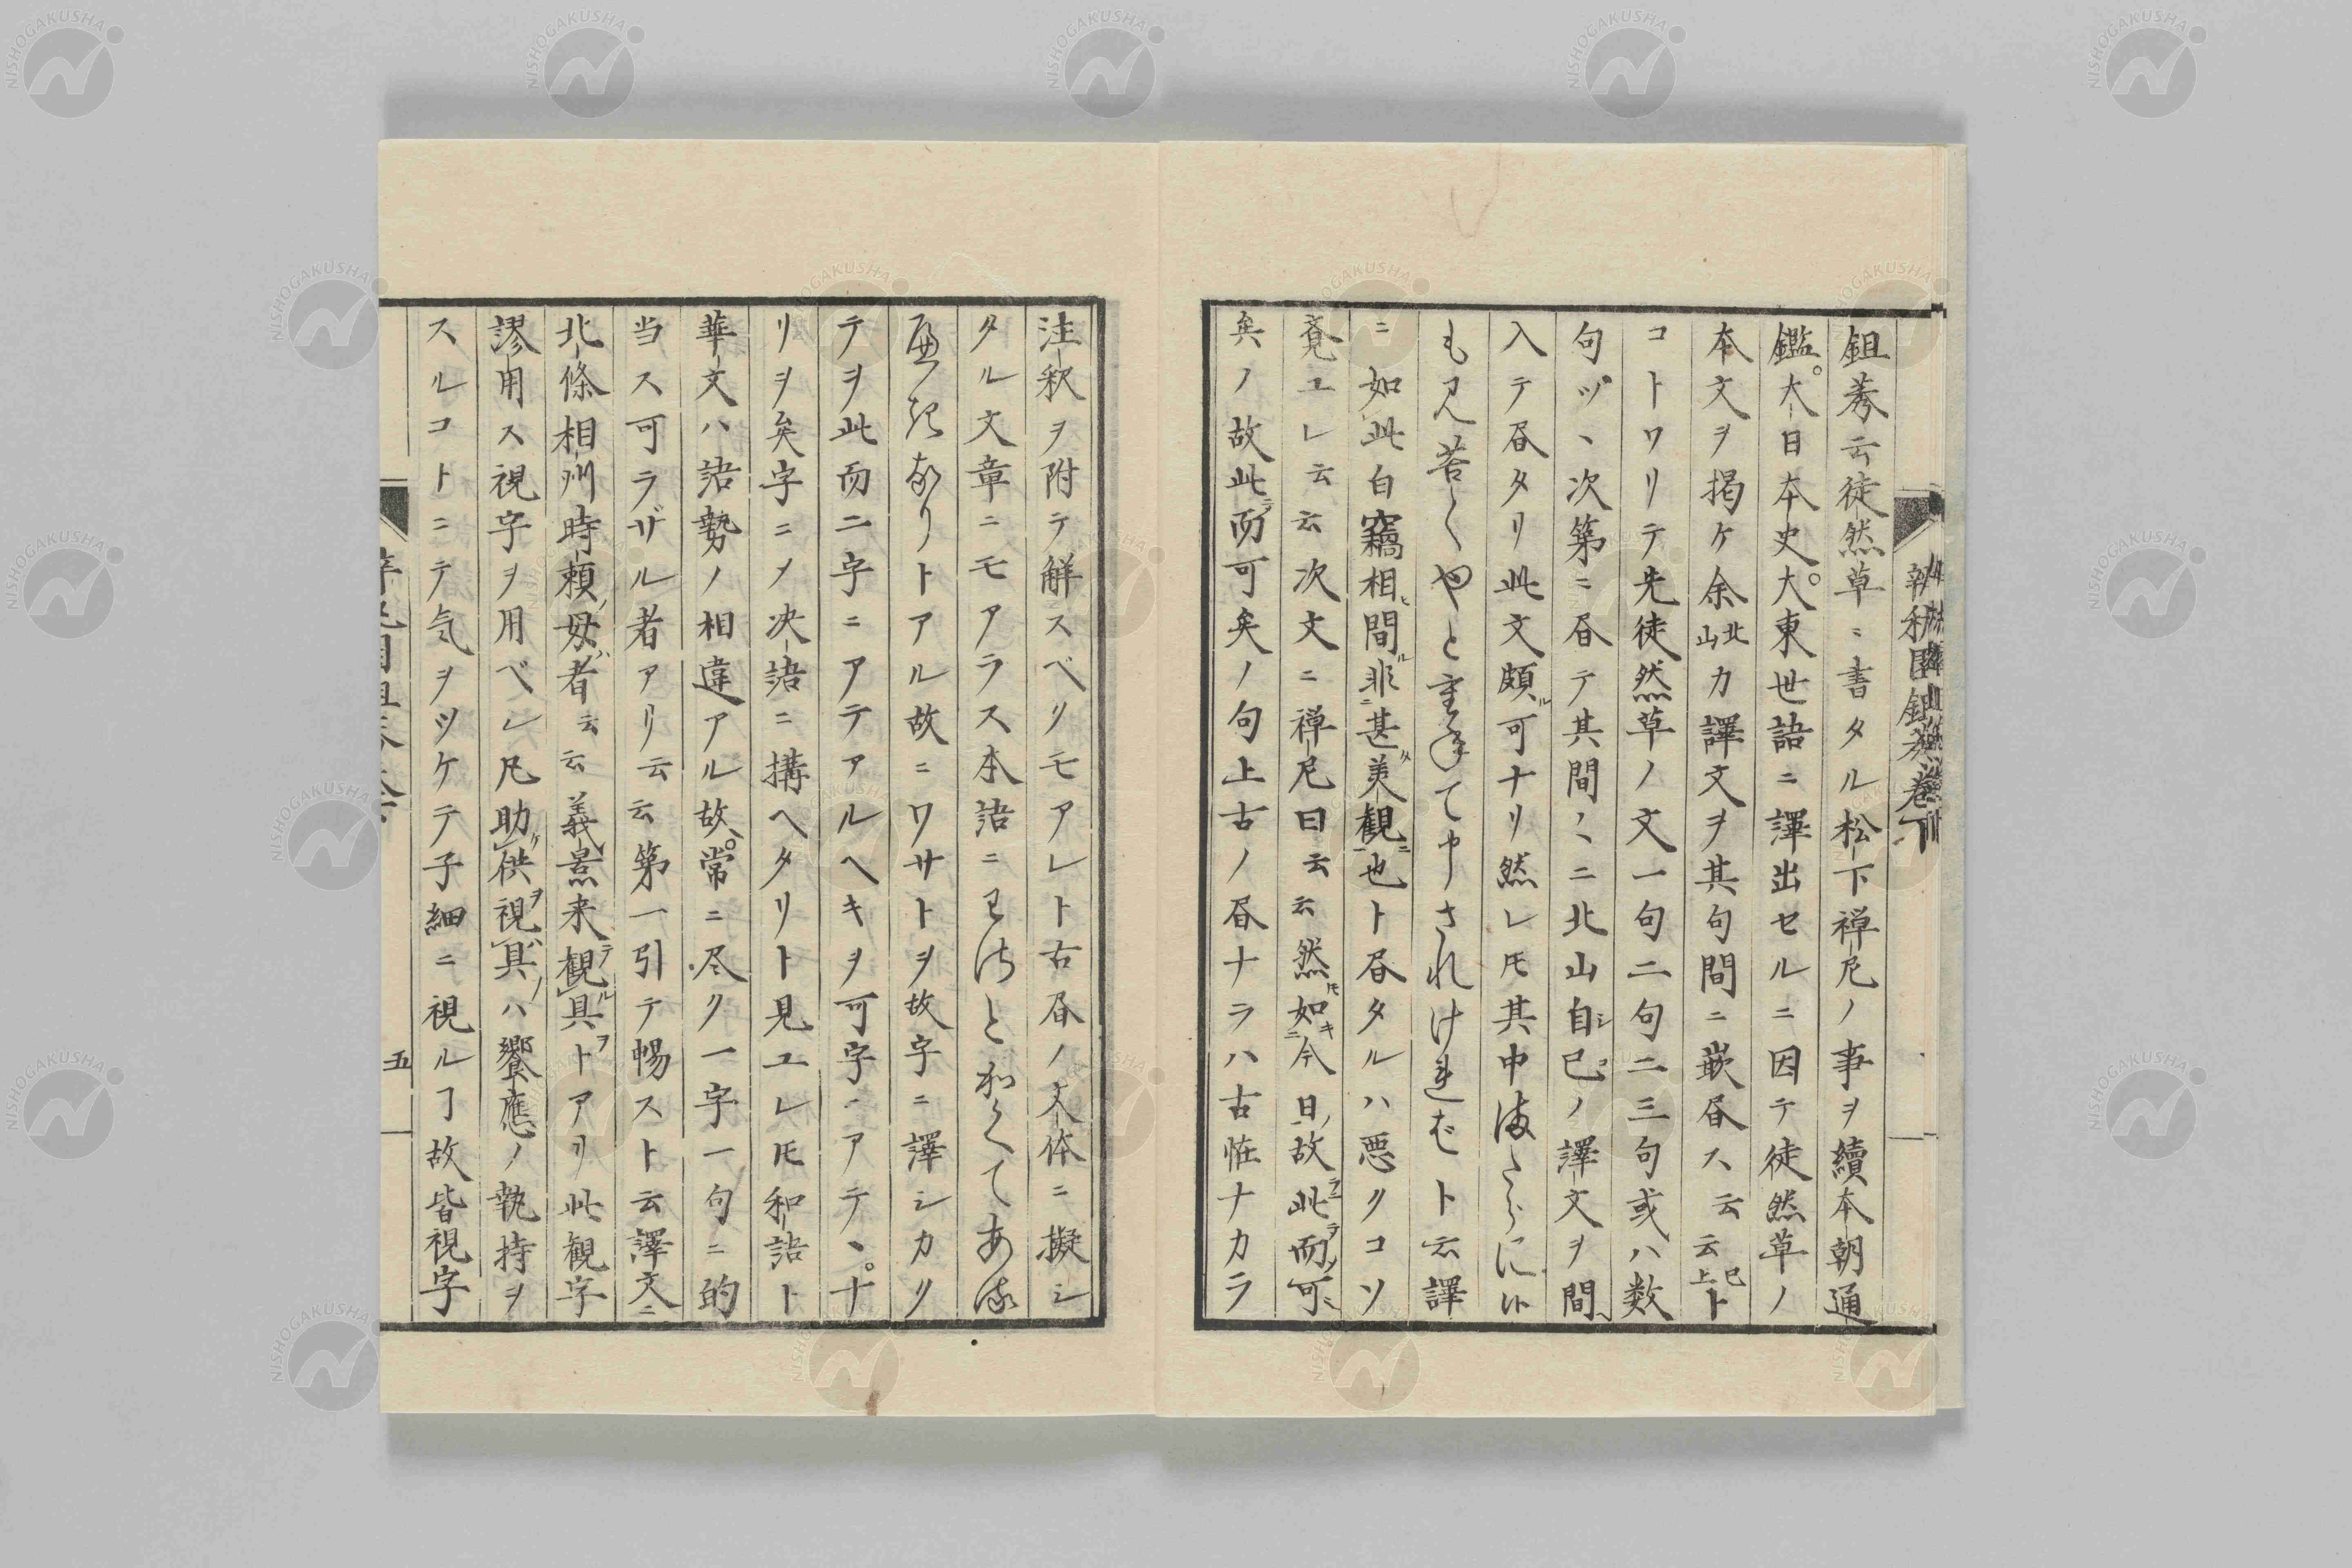 鉏莠云徒然草ニ書タル松下禅尼ノ事ヲ續本朝通
鑑。大日本史。大東世語ニ譯出セルニ因テ徒然草ノ
本文ヲ掲ケ余北山カ譯文ヲ其句間ニ嵌昏ス云云已上ト
コトワリテ先徒然草ノ文一句二句二三句或ハ数
句ヅヽ次第ニ昏テ其間〻ニ北山自己ノ譯文ヲ間
入テ昏タリ此文頗ル可ナリ然レ𪜈其中まだらに
も見苦くやと重て申されければト云譯
ニ如此白竊相間非甚美観也ト昏タルハ悪クコソ
覚エレ云云次文ニ禅尼曰云云然如今日故此而可
矣ノ故此而可矣ノ句上古ノ昏ナラハ古怪ナカラ
注釈ヲ附テ解スベリモアレト古昏ノ文体ニ擬シ
タル文章ニモアラス本語ニわざとかくてある
べきなりトアル故ニワサトヲ故字ニ譯シカク
テヲ此而二字ニアテアルヘキヲ可字ニアテヽ。ナ
リヲ矣字ニメ决語ニ搆ヘタリト見エレ𪜈和語ト
華文ハ語勢ノ相違アル故。常ニ尽ク一字一句ニ的
当ス可ラザル者アリ云云第一引テ暢スト云譯文ニ
北條相州時頼母者云云義景来観具トアリ此観字
謬用ス視字ヲ用ベレ凡助供視具ハ饗應ノ執持ヲ
スルコトニテ気ヲツケテ子細ニ視ルヿ故皆視字
五
NISHOGAKUSHA